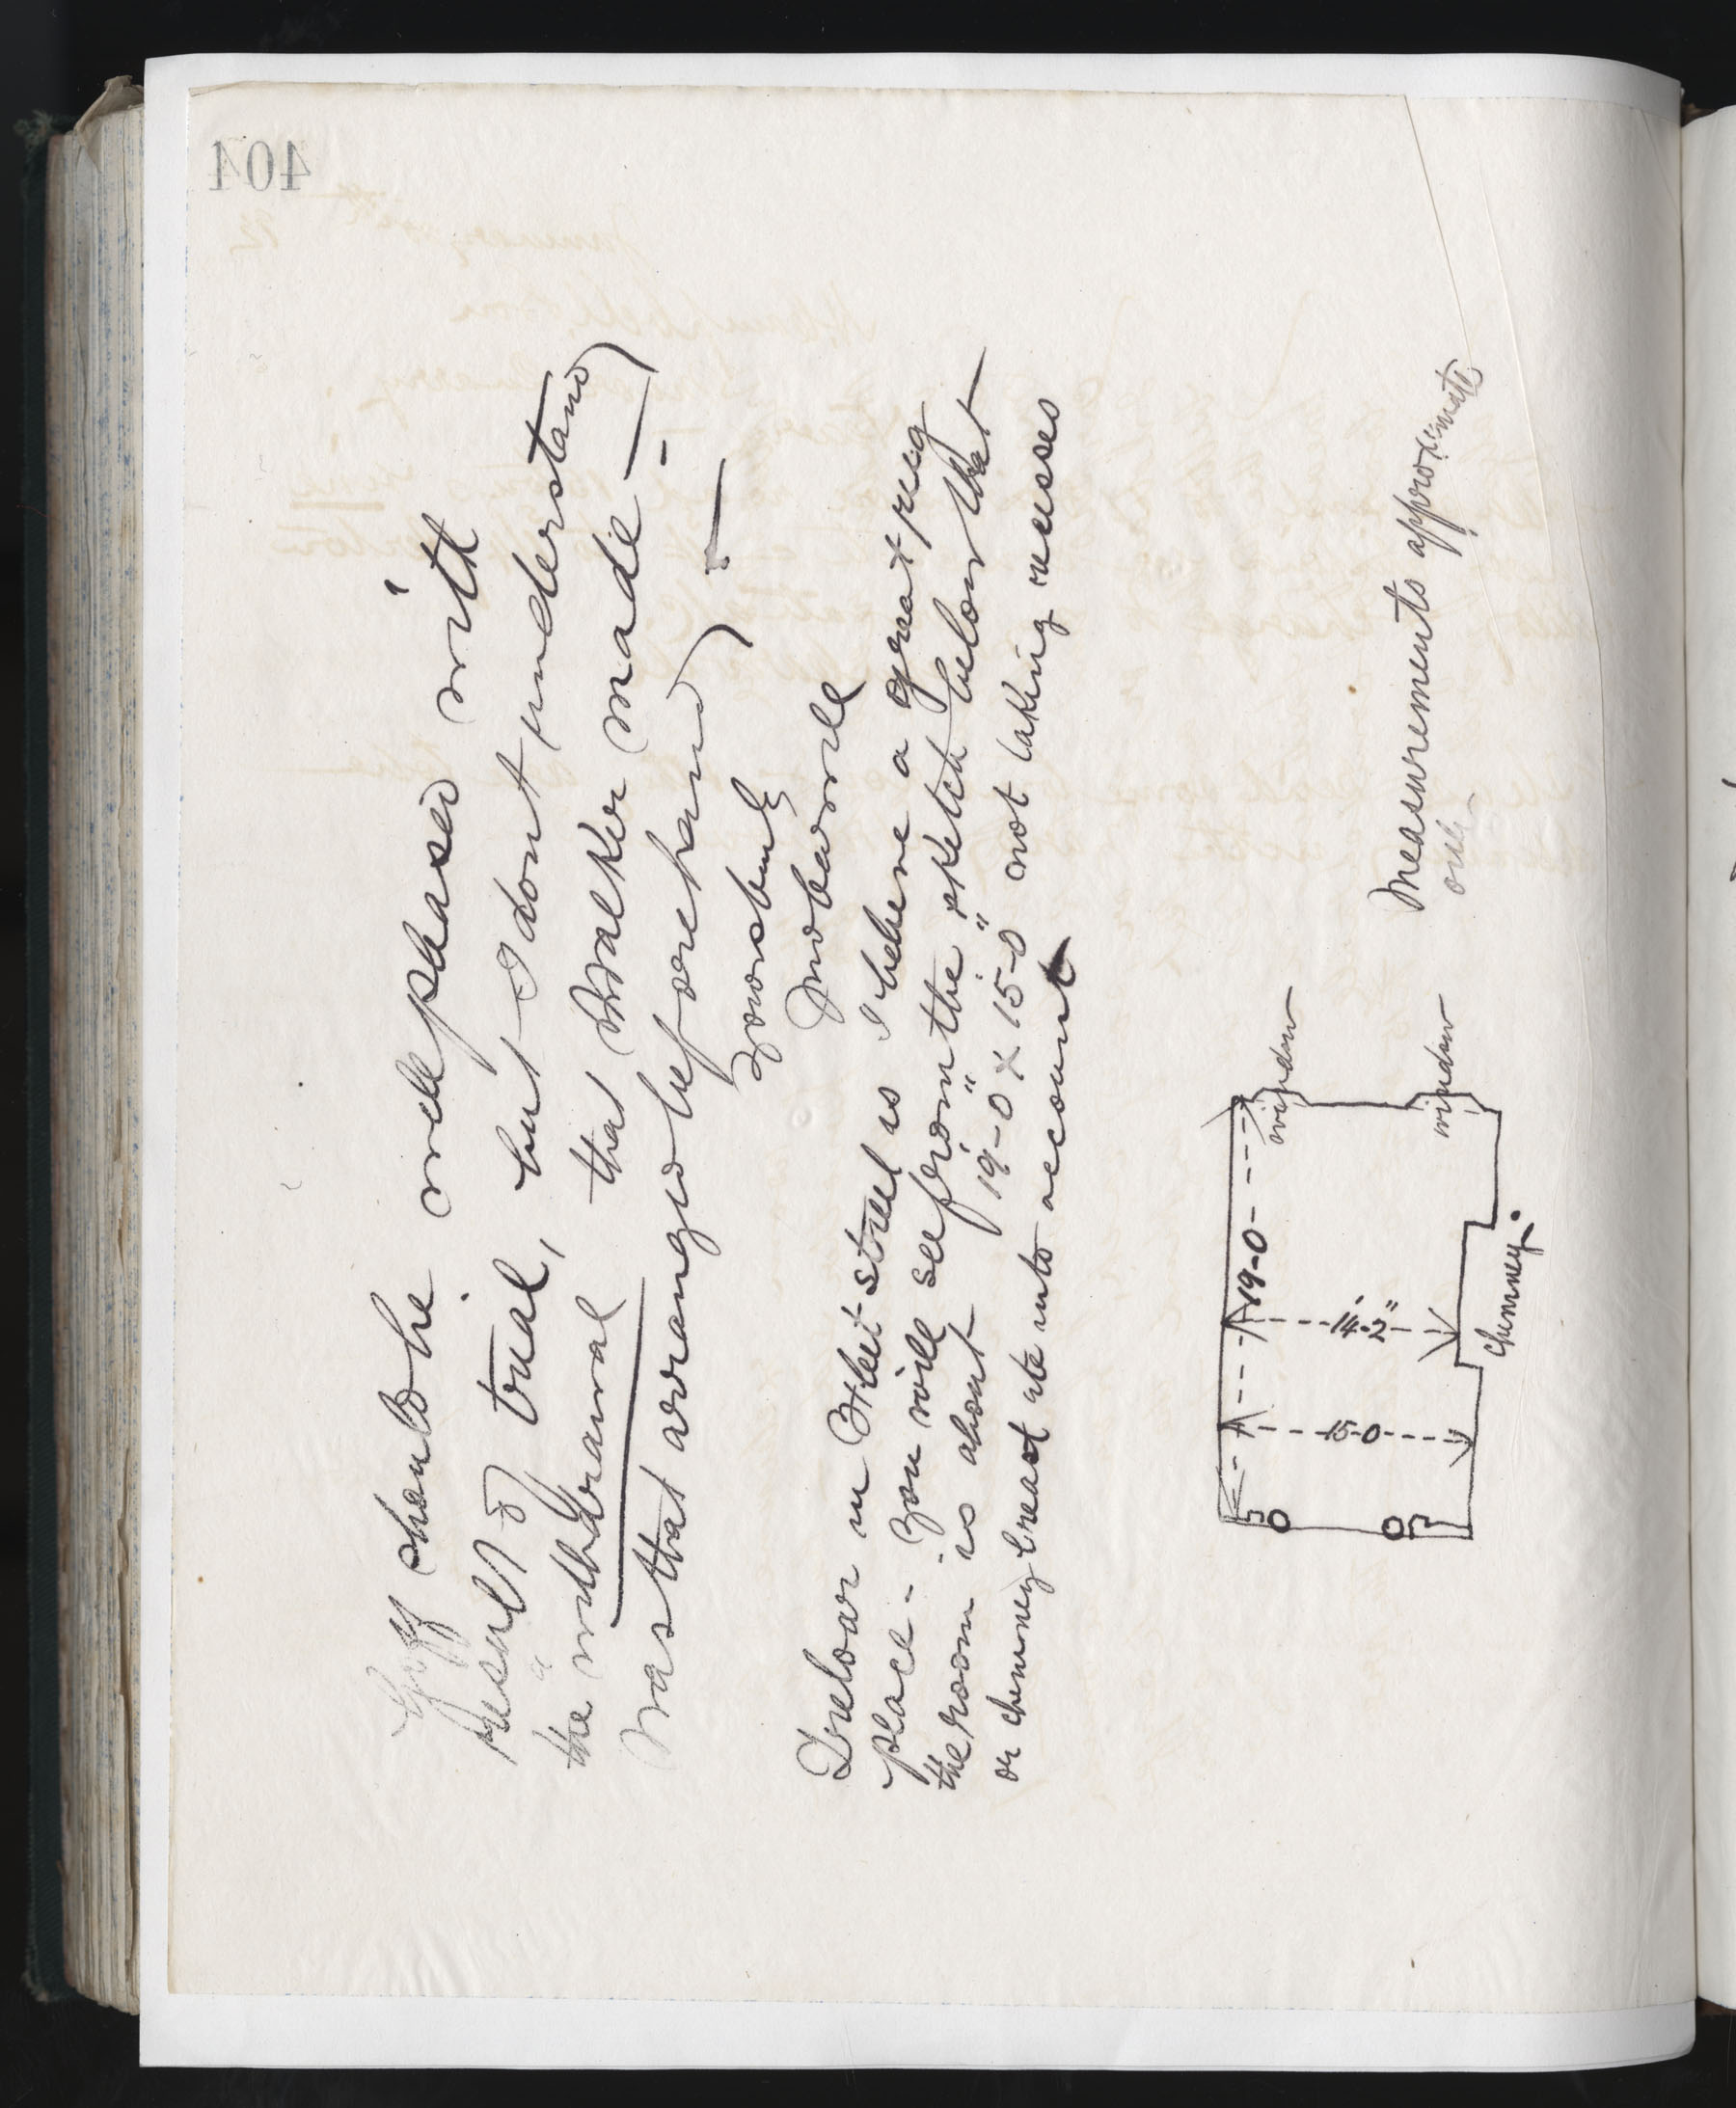 Goff should be well pleased with
result of trial, but I dont understand
the withdrawal that Walker made —
was that arranged beforehand) . —
Yours truly
Treloar in Fleet street is I believe a great rug
place - . You will see from the sketch below that
the room is about 19'-0" x 15'-0" not taking recesses
or chimney breast etc into account
19-0
15-0
14'-2"
window
window
chimney.
Measurements approximate
only
404